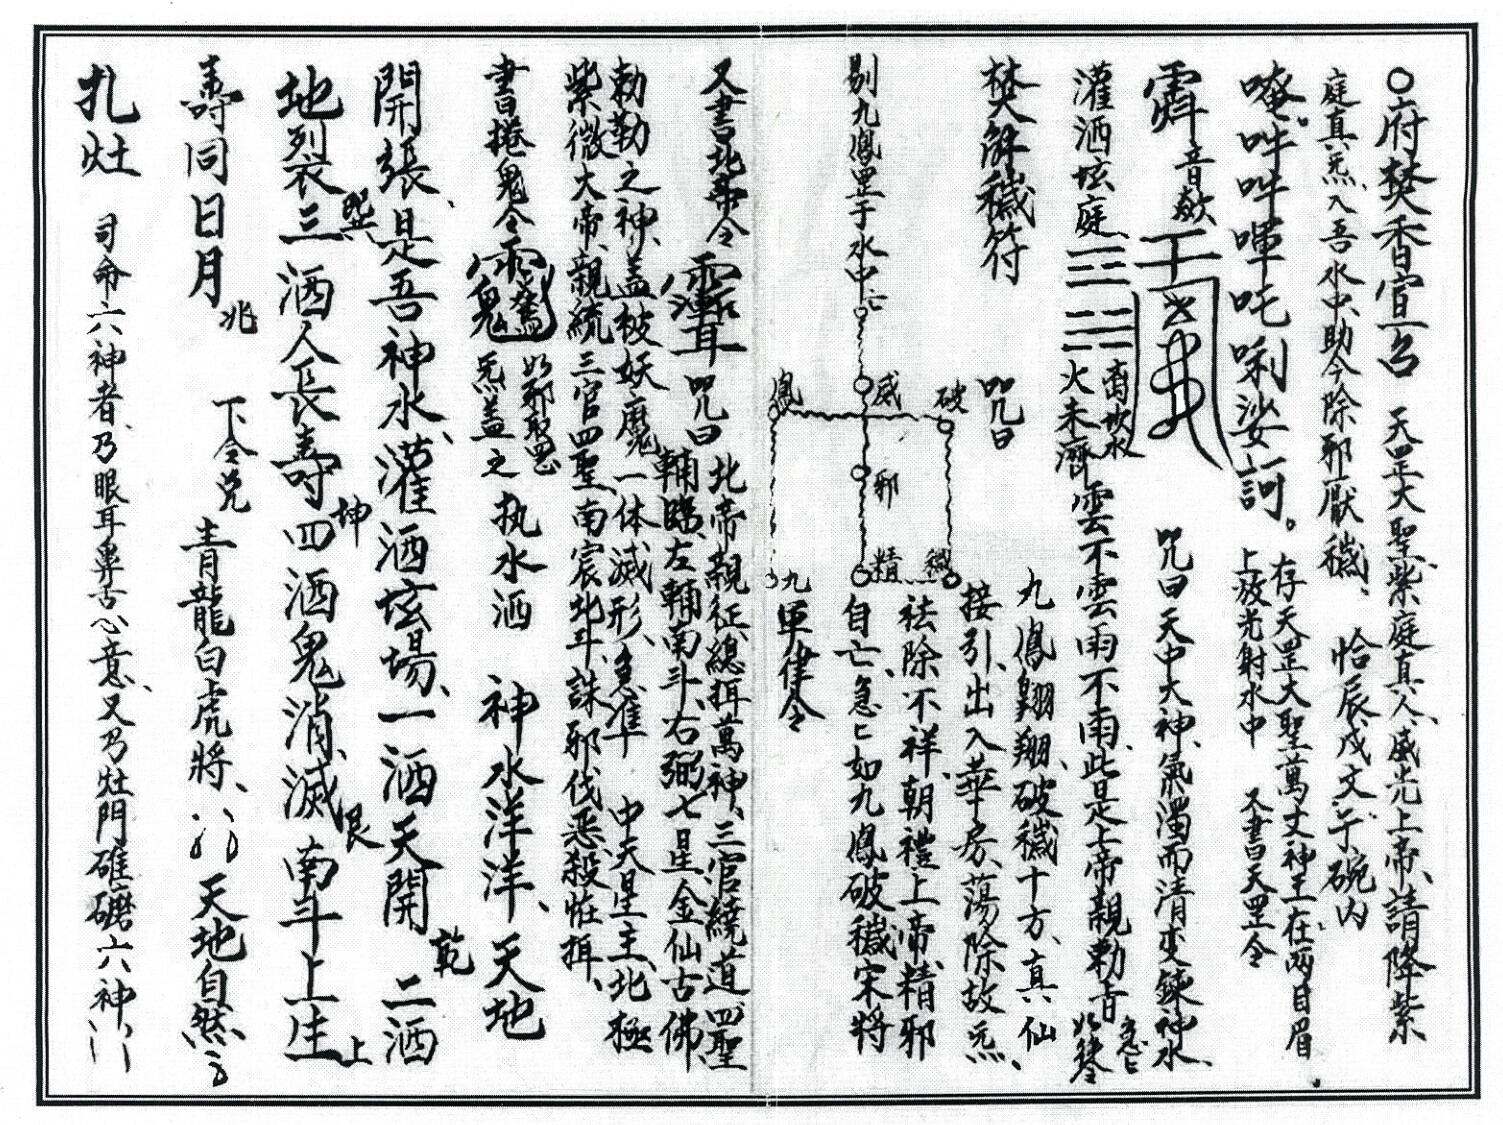 ○府焚香宣召 天罡大聖、紫庭真人、威光上帝、請降紫
庭真炁、入吾水中、助今除邪厭穢、 恰辰戊文于碗内
唵吽吽㖶吒唎娑訶。 存天罡大聖萬丈神王在兩目眉
上放光射水中 又書天罡令
霹 音歘 咒曰 天中大神、氣濁而清、変鍊神水、
灌洒坛庭、 离坎水火未濟 雲不雲、雨不雨、此是上帝親勅吉
焚解穢符 咒曰 九鳳翱翔、破穢十方、真仙
接引、出入華房、蕩除故炁、
祛除不祥、朝禮上帝、精邪
自亡、急匕如九鳳破穢宋將
軍律令
剔九鳳罡于水中亡
破 威 鳳
邪
穢 精 九
又書北帝令 咒曰 北帝親征、總摂萬神、三官繞道、四聖
輔臨、左輔南斗、右弼七星、金仙古佛、
勅勒之神、盖被妖魔、一体滅形、急準 中天星主、北極
紫微大帝、親統三官四聖、南宸北斗、誅邪伐惡、殺怪摂、
書捲鬼令 炁盖之 执水洒 神水洋洋、天地
開張、是吾神水、灌洒坛場、一洒天開 乾 二洒
地裂 巽 三洒人長壽 坤 四洒鬼消滅 艮 南斗上生 上
壽同日月 兆 下令兑 青龍白虎將、 天地自然
扎灶 司命六神者、乃眼耳鼻舌心意、又乃灶門碓磨六神